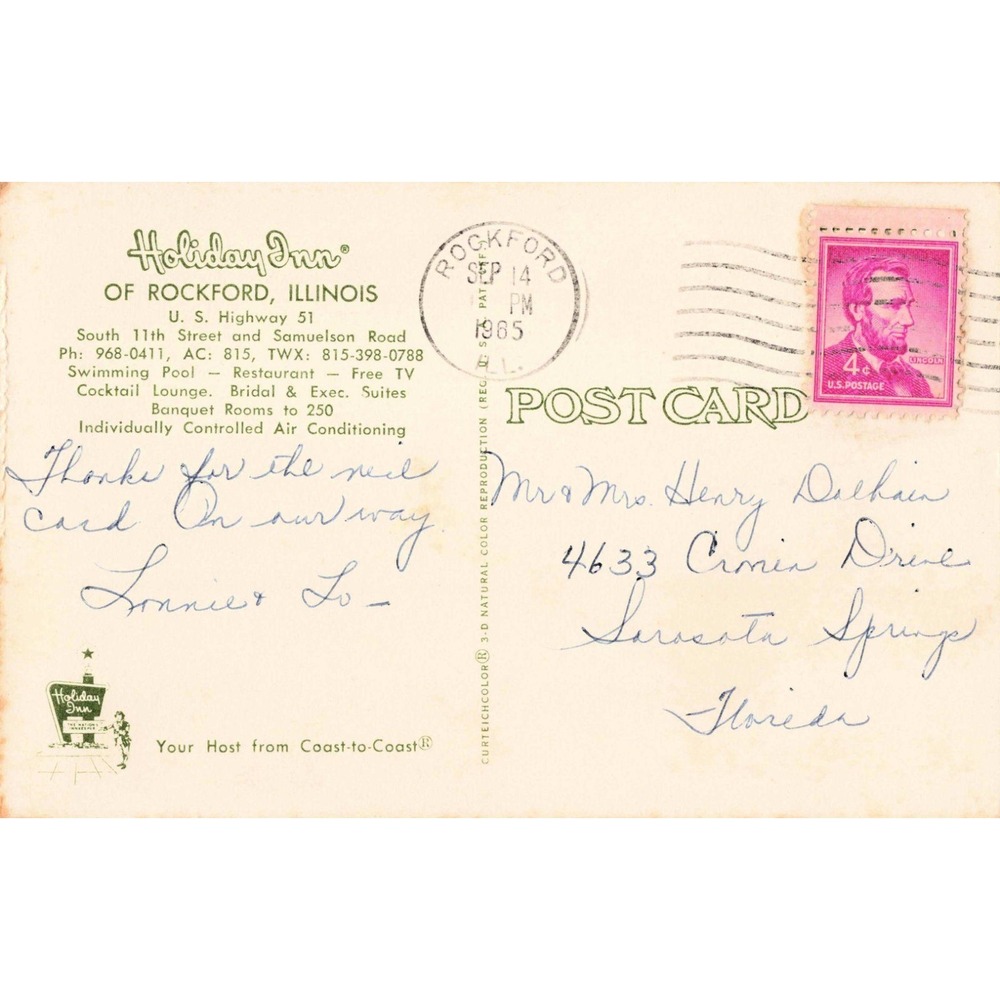 Holiday Inn®
OF ROCKFORD, ILLINOIS
U. S. Highway 51
South 11th Street and Samuelson Road
Ph: 968-0411, AC: 815, TWX: 815-398-0788
Swimming Pool — Restaurant — Free TV
Cocktail Lounge. Bridal & Exec. Suites
Banquet Rooms to 250
Individually Controlled Air Conditioning
Thanks for the neil
card. On our way.
Lonnie & Lo —
Holiday
Inn
THE NATION'S
INNKEEPER
Your Host from Coast-to-Coast®
CURTEICHCOLOR® 3-D NATURAL COLOR REPRODUCTION (REG. U.S. PAT. OFF.)
ROCKFORD
SEP 14
PM
1965
ILL.
POST CARD
LINCOLN
4¢
U.S. POSTAGE
Mr & Mrs. Henry Dalhain
4633 Cronin Drive
Sarasota Springs
Floreda